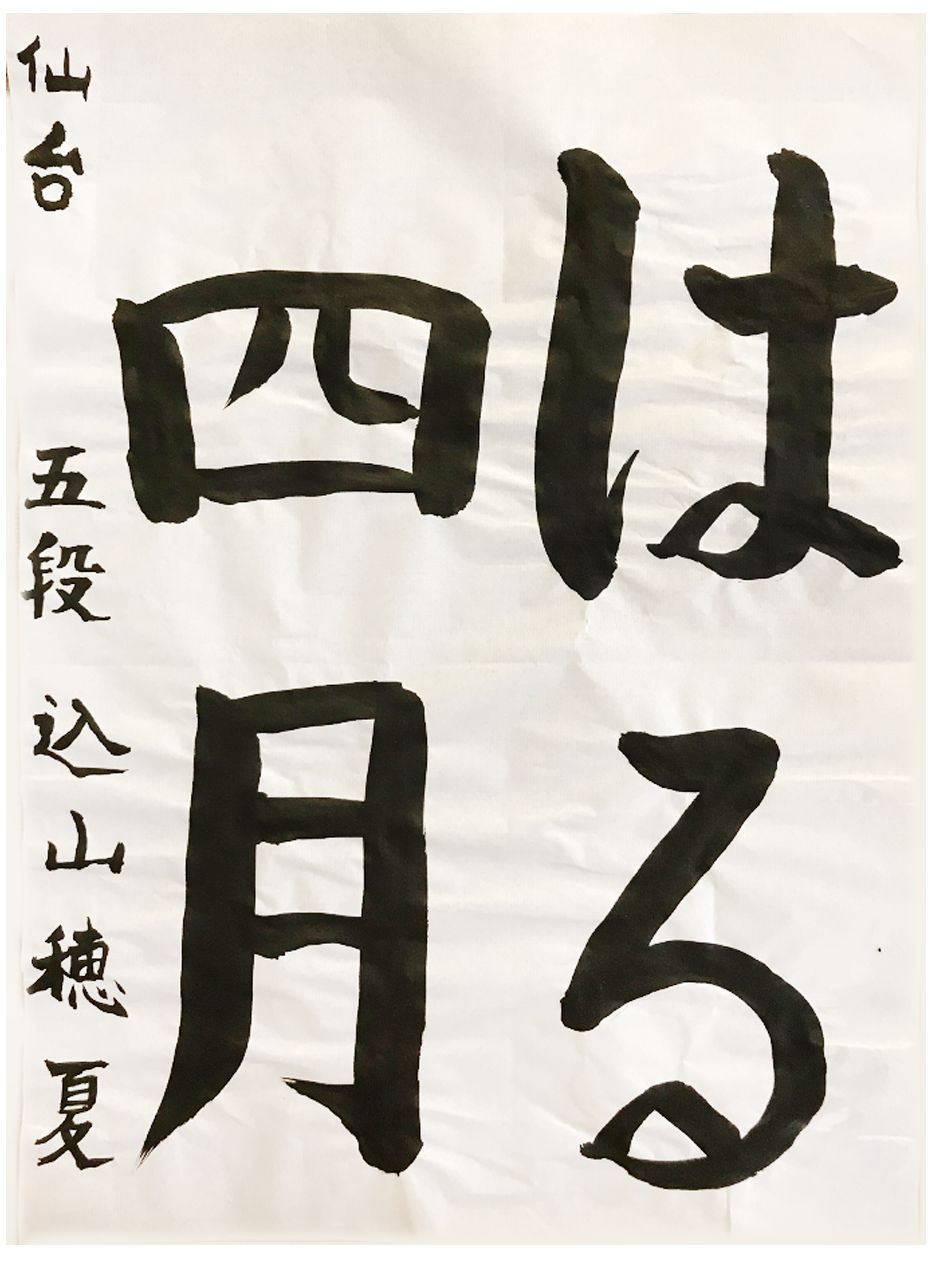 はる
四月
仙台 五段 込山穂夏